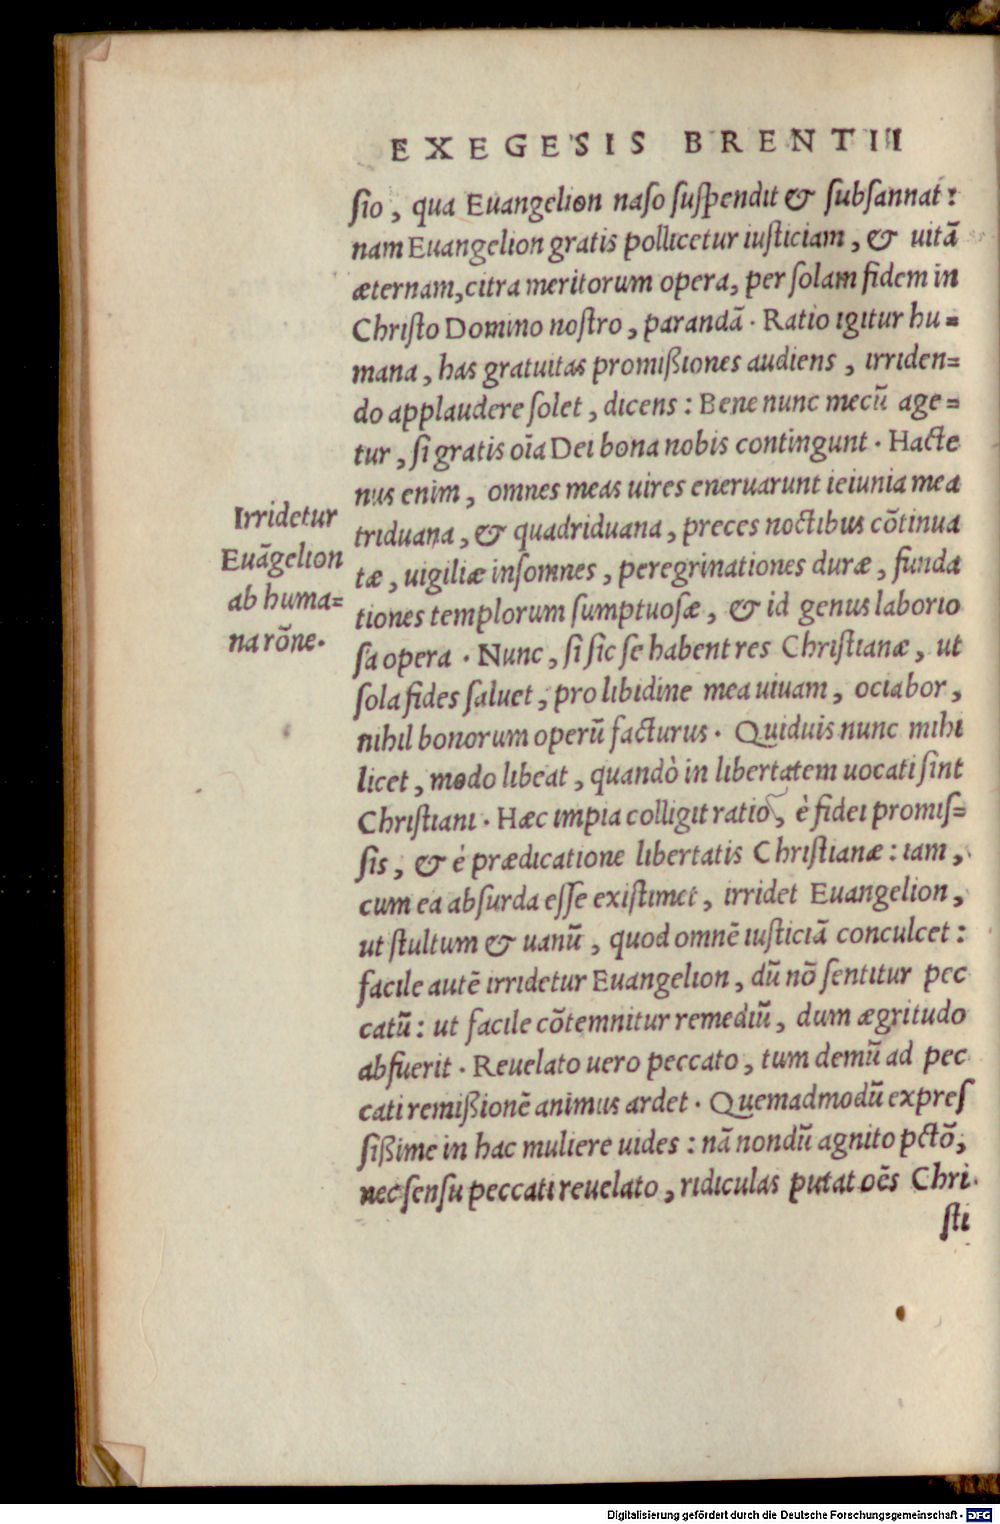 EXEGESIS BRENTII
sio, qua Euangelion naso suspendit & subsannat:
nam Euangelion gratis pollicetur iusticiam, & uitã
æternam, citra meritorum opera, per solam fidem in
Christo Domino nostro, parandã. Ratio igitur hu=
mana, has gratuitas promißiones audiens, irriden=
do applaudere solet, dicens: Bene nunc mecũ age=
tur, si gratis oĩa Dei bona nobis contingunt. Hacte
nus enim, omnes meas uires eneruarunt ieiunia mea
triduana, & quadriduana, preces noctibus cõtinua
tæ, uigiliæ insomnes, peregrinationes duræ, funda
tiones templorum sumptuosæ, & id genus laborio
sa opera. Nunc, si sic se habent res Christianæ, ut
sola fides saluet, pro libidine mea uiuam, ociabor,
nihil bonorum operũ facturus. Quiduis nunc mihi
licet, modo libeat, quandò in libertatem uocati sint
Christiani. Hæc impia colligit ratio, è fidei promis=
sis, & è prædicatione libertatis Christianæ: iam,
cum ea absurda esse existimet, irridet Euangelion,
ut stultum & uanũ, quod omnẽ iusticiã conculcet:
facile autẽ irridetur Euangelion, dũ nõ sentitur pec
catũ: ut facile cõtemnitur remediũ, dum ægritudo
abfuerit. Reuelato uero peccato, tum demũ ad pec
cati remißionẽ animus ardet. Quemadmodũ expres
sißime in hac muliere uides: nã nondũ agnito pctõ,
nec sensu peccati reuelato, ridiculas putat oẽs Chri
sti
Irridetur
Euãgelion
ab huma=
na rõne.
Digitalisierung gefördert durch die Deutsche Forschungsgemeinschaft - DFG